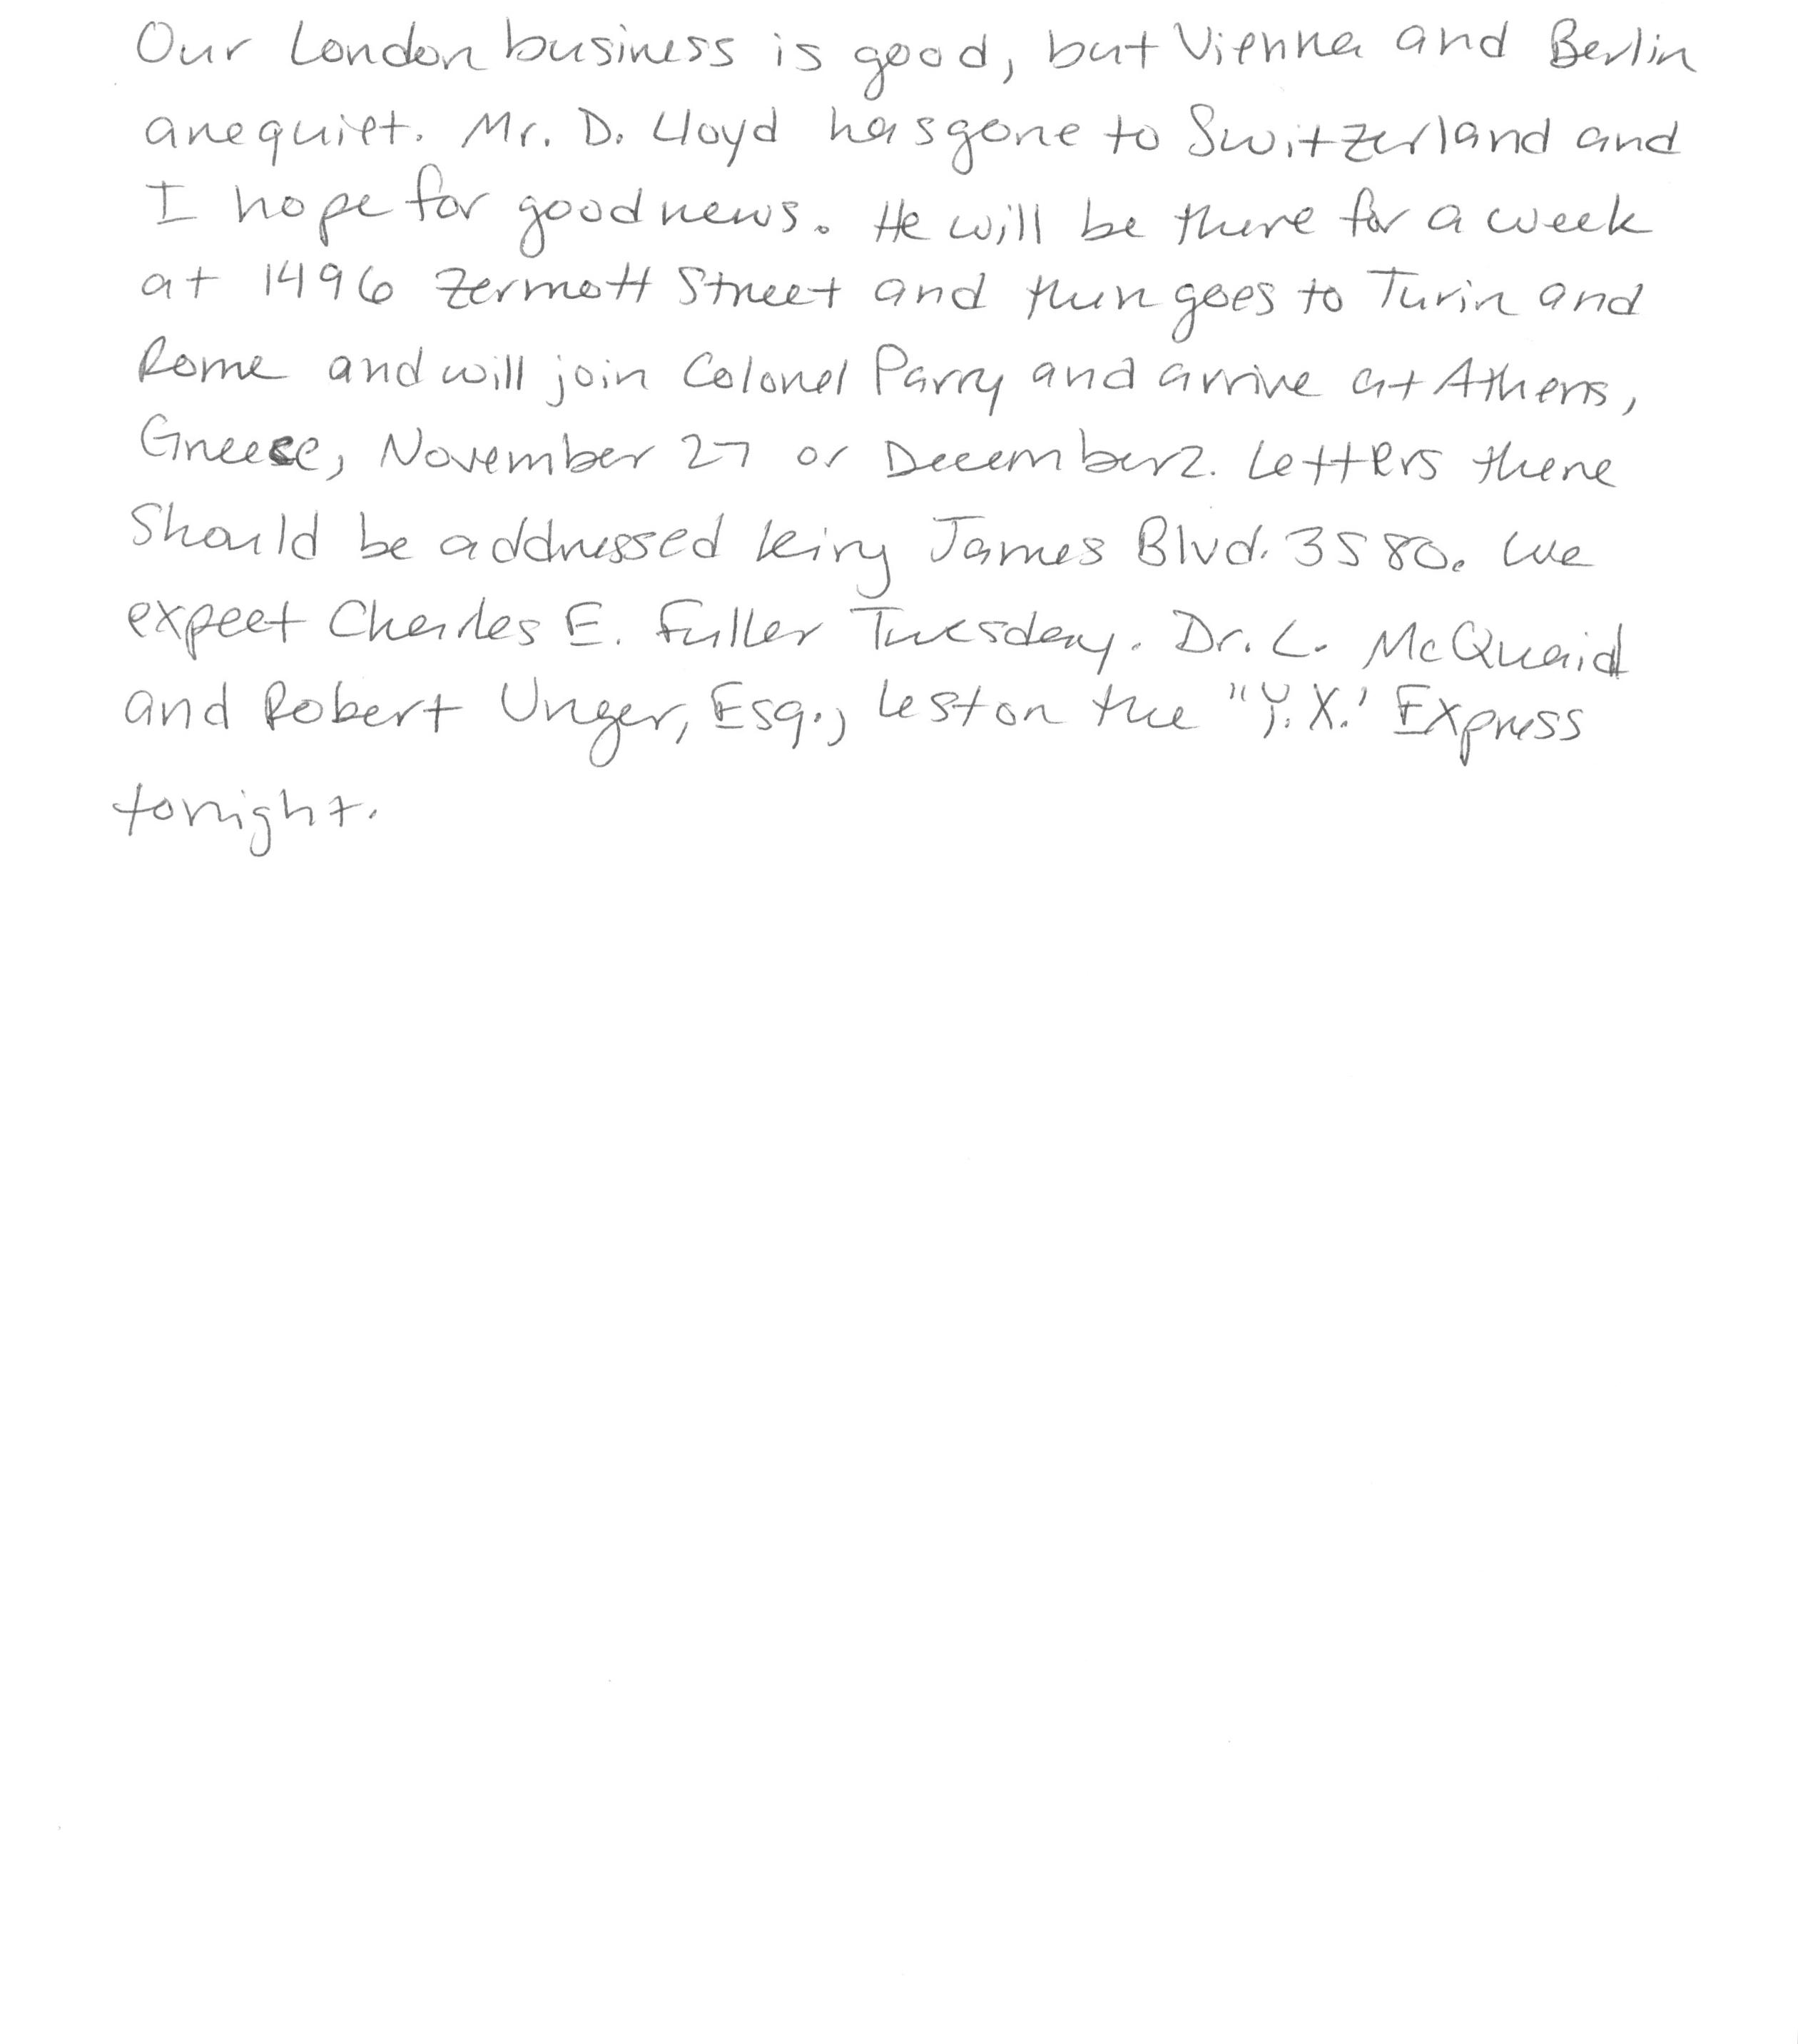 Our London business is good, but Vienna and Berlin
are quiet. Mr. D. Lloyd has gone to Switzerland and
I hope for good news. He will be there for a week
at 1496 Zermott Street and then goes to Turin and
Rome and will join Colonel Parry and arrive at Athens,
Greece, November 27 or December 2. Letters there
Should be addressed King James Blvd. 3580. We
expect Charles E. Fuller Tuesday. Dr. L. McQuaid
and Robert Unger, Esq., left on the "Y.X.' Express
tonight.